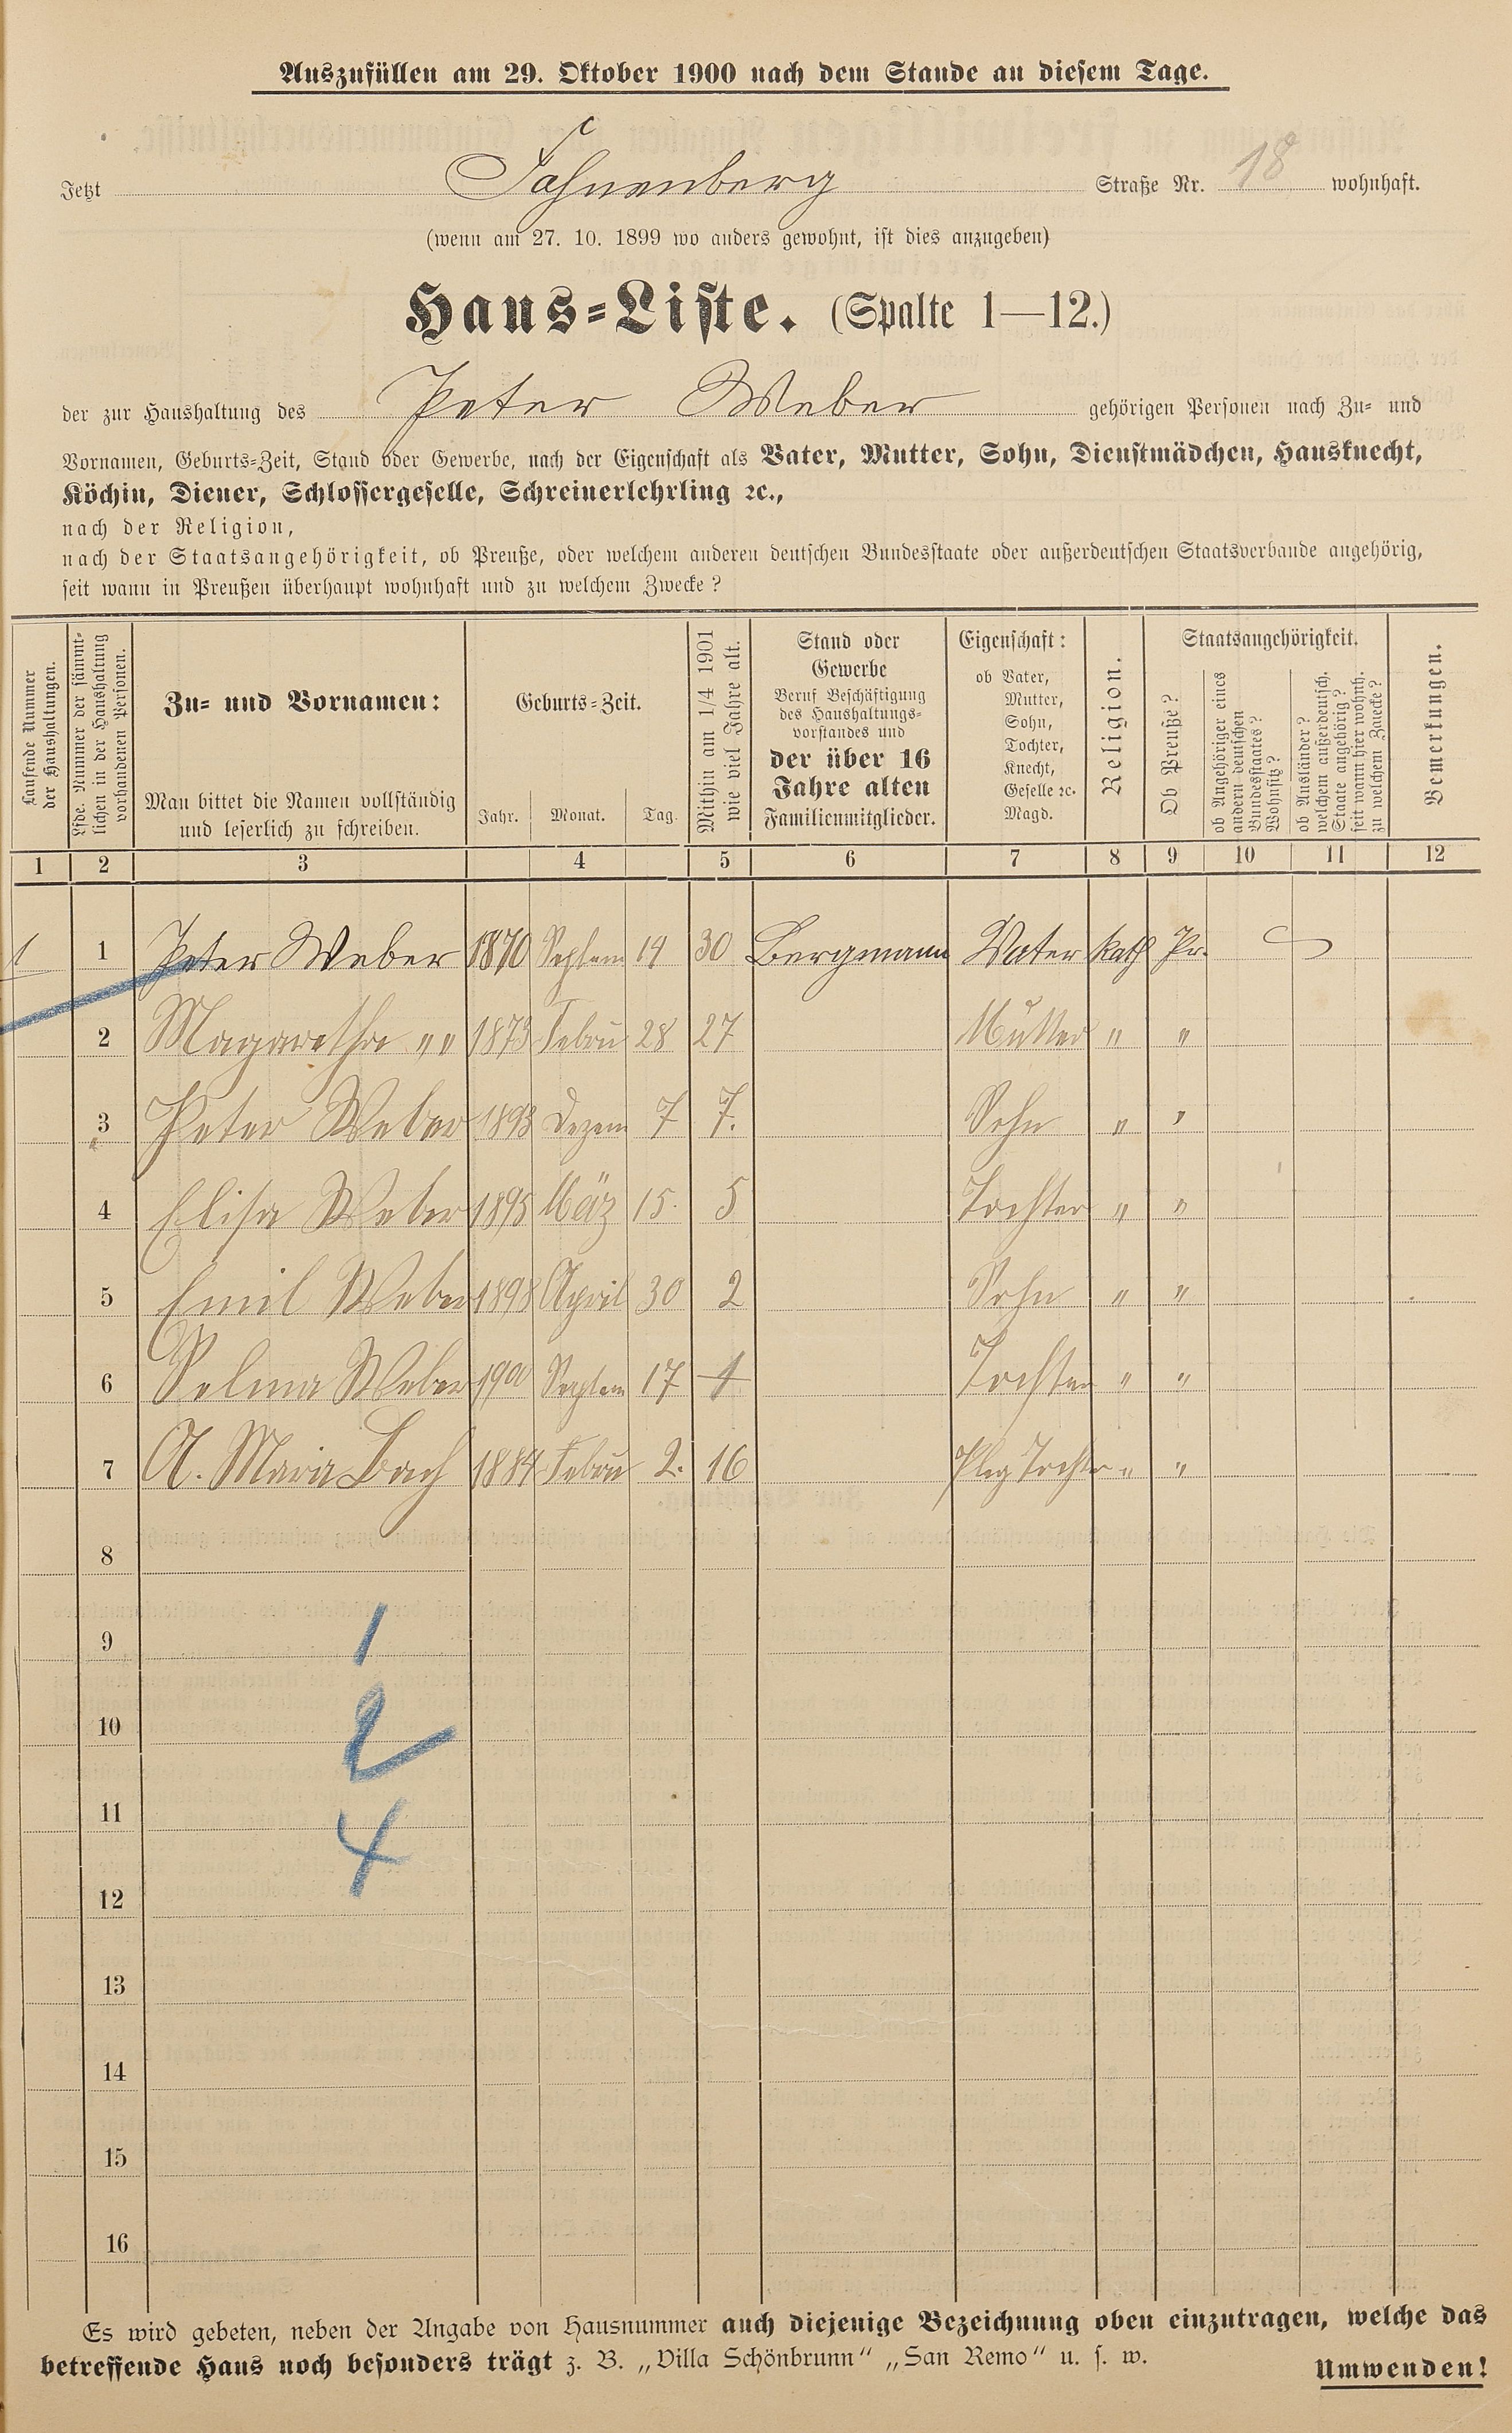 Auszufüllen am 29. Oktober 1900 nach dem Stande an diesem Tage.
Jetzt Fahnenberg Straße Nr. 18 wohnhaft.
(wenn am 27. 10. 1899 wo anders gewohnt, ist dies anzugeben)
Haus-Liste. (Spalte 1—12.)
der zur Haushaltung des Peter Weber gehörigen Personen nach Zu- und
Vornamen, Geburts-Zeit, Stand oder Gewerbe, nach der Eigenschaft als Vater, Mutter, Sohn, Dienstmädchen, Hausknecht,
Köchin, Diener, Schlossergeselle, Schreinerlehrling ꝛc.,
nach der Religion,
nach der Staatsangehörigkeit, ob Preuße, oder welchem anderen deutschen Bundesstaate oder außerdeutschen Staatsverbande angehörig,
seit wann in Preußen überhaupt wohnhaft und zu welchem Zwecke?
Laufende Nummer
der Haushaltungen.
Lfde. Nummer der sämmt-
lichen in der Haushaltung
vorhandenen Personen.
Zu- und Vornamen:
Man bittet die Namen vollständig
und leserlich zu schreiben.
Geburts-Zeit.
Jahr. Monat. Tag.
Mithin am 1/4 1901
wie viel Jahre alt.
Stand oder
Gewerbe
Beruf Beschäftigung
des Haushaltungs-
vorstandes und
der über 16
Jahre alten
Familienmitglieder.
Eigenschaft:
ob Vater,
Mutter,
Sohn,
Tochter,
Knecht,
Geselle ꝛc.
Magd.
Religion.
Staatsangehörigkeit.
Ob Preuße?
ob Angehöriger eines
andern deutschen
Bundesstaates?
Wohnsitz?
ob Ausländer?
welchem außerdeutsch.
Staate angehörig?
seit wann hier wohnh.
zu welchem Zwecke?
Bemerkungen.
1 2 3 4 5 6 7 8 9 10 11 12
1 1 Peter Weber 1870 Septem 14 30 Bergmann Vater Kath Pr.
2 Magaretha " " 1873 Febru 28 27 Mutter " "
3 Peter Weber 1893 Dezem 7 7. Sohn " "
4 Elisa Weber 1895 Mäz 15. 5 Tochter " "
5 Emil Weber 1898 April 30 2 Sohn " "
6 Selma Weber 190 Septem 17 1 Tochter " "
7 A. Maria Bach 1884 Febru 2. 16 Pleg Tochter " "
8
9 1
10 2
11 4
12
13
14
15
16
Es wird gebeten, neben der Angabe von Hausnummer auch diejenige Bezeichnung oben einzutragen, welche das
betreffende Haus noch besonders trägt z. B. „Villa Schönbrunn" „San Remo" u. s. w.
Umwenden!